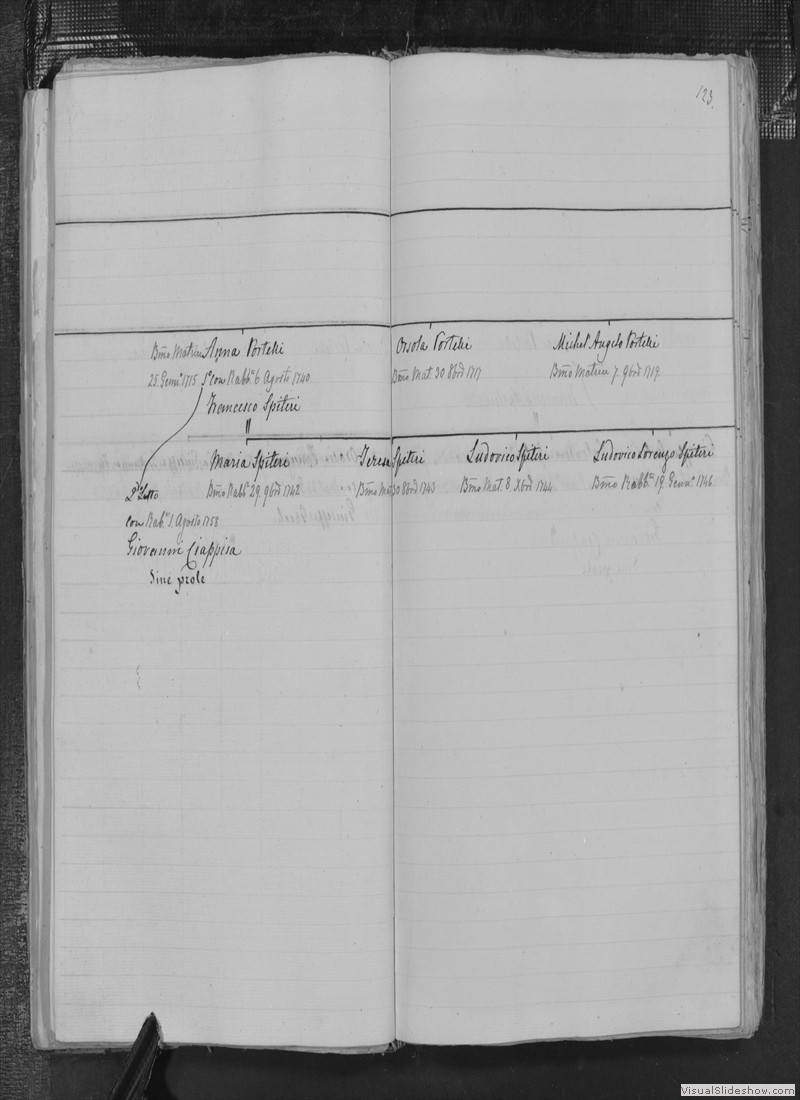 123.
Bmo Matrice Anna Portelli
25. Genn.o 1715 Po Con Rabb.o 6 Agosto 1740
Francesco Spiteri
Orsola Portelli
Bmo Mat. 30 8bre 1717
Michel' Angelo Portelli
Bmo Matrice 7. 9bre 1719.
Maria Spiteri
Bmo Rabb.o 29. 9bre 1742
Teresa Spiteri
Bmo Mat 30 8bre 1743
Ludovico Spiteri
Bmo Mat. 8. Xbre 1744
Ludovico Lorenzo Spiteri
Bmo Rabb.o 19. Genn.o 1746
2.o Letto
Con Rab.o 1. Agosto 1758
Giovanni Ciappisa
Sine prole
VisualSlideshow.com